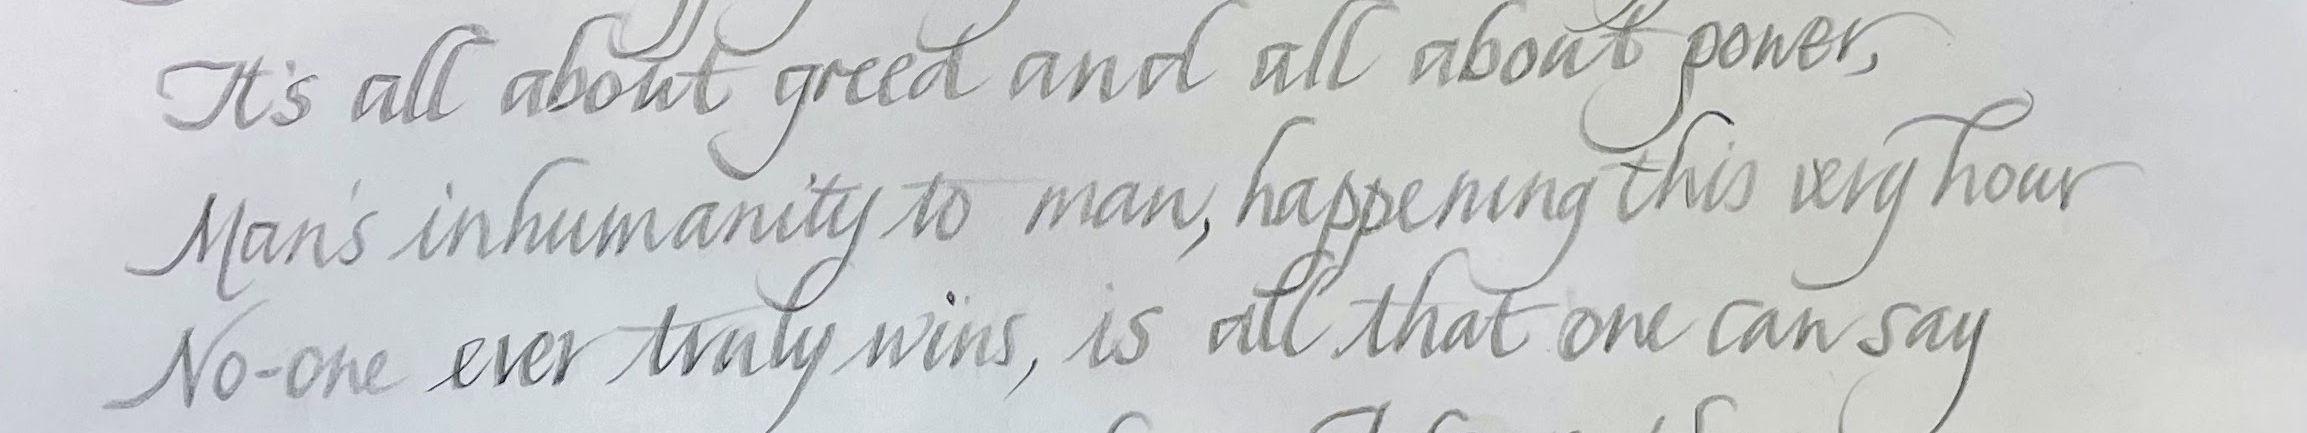 It's all about greed and all about power,
Man's inhumanity to man, happening this very hour
No-one ever truly wins, is all that one can say